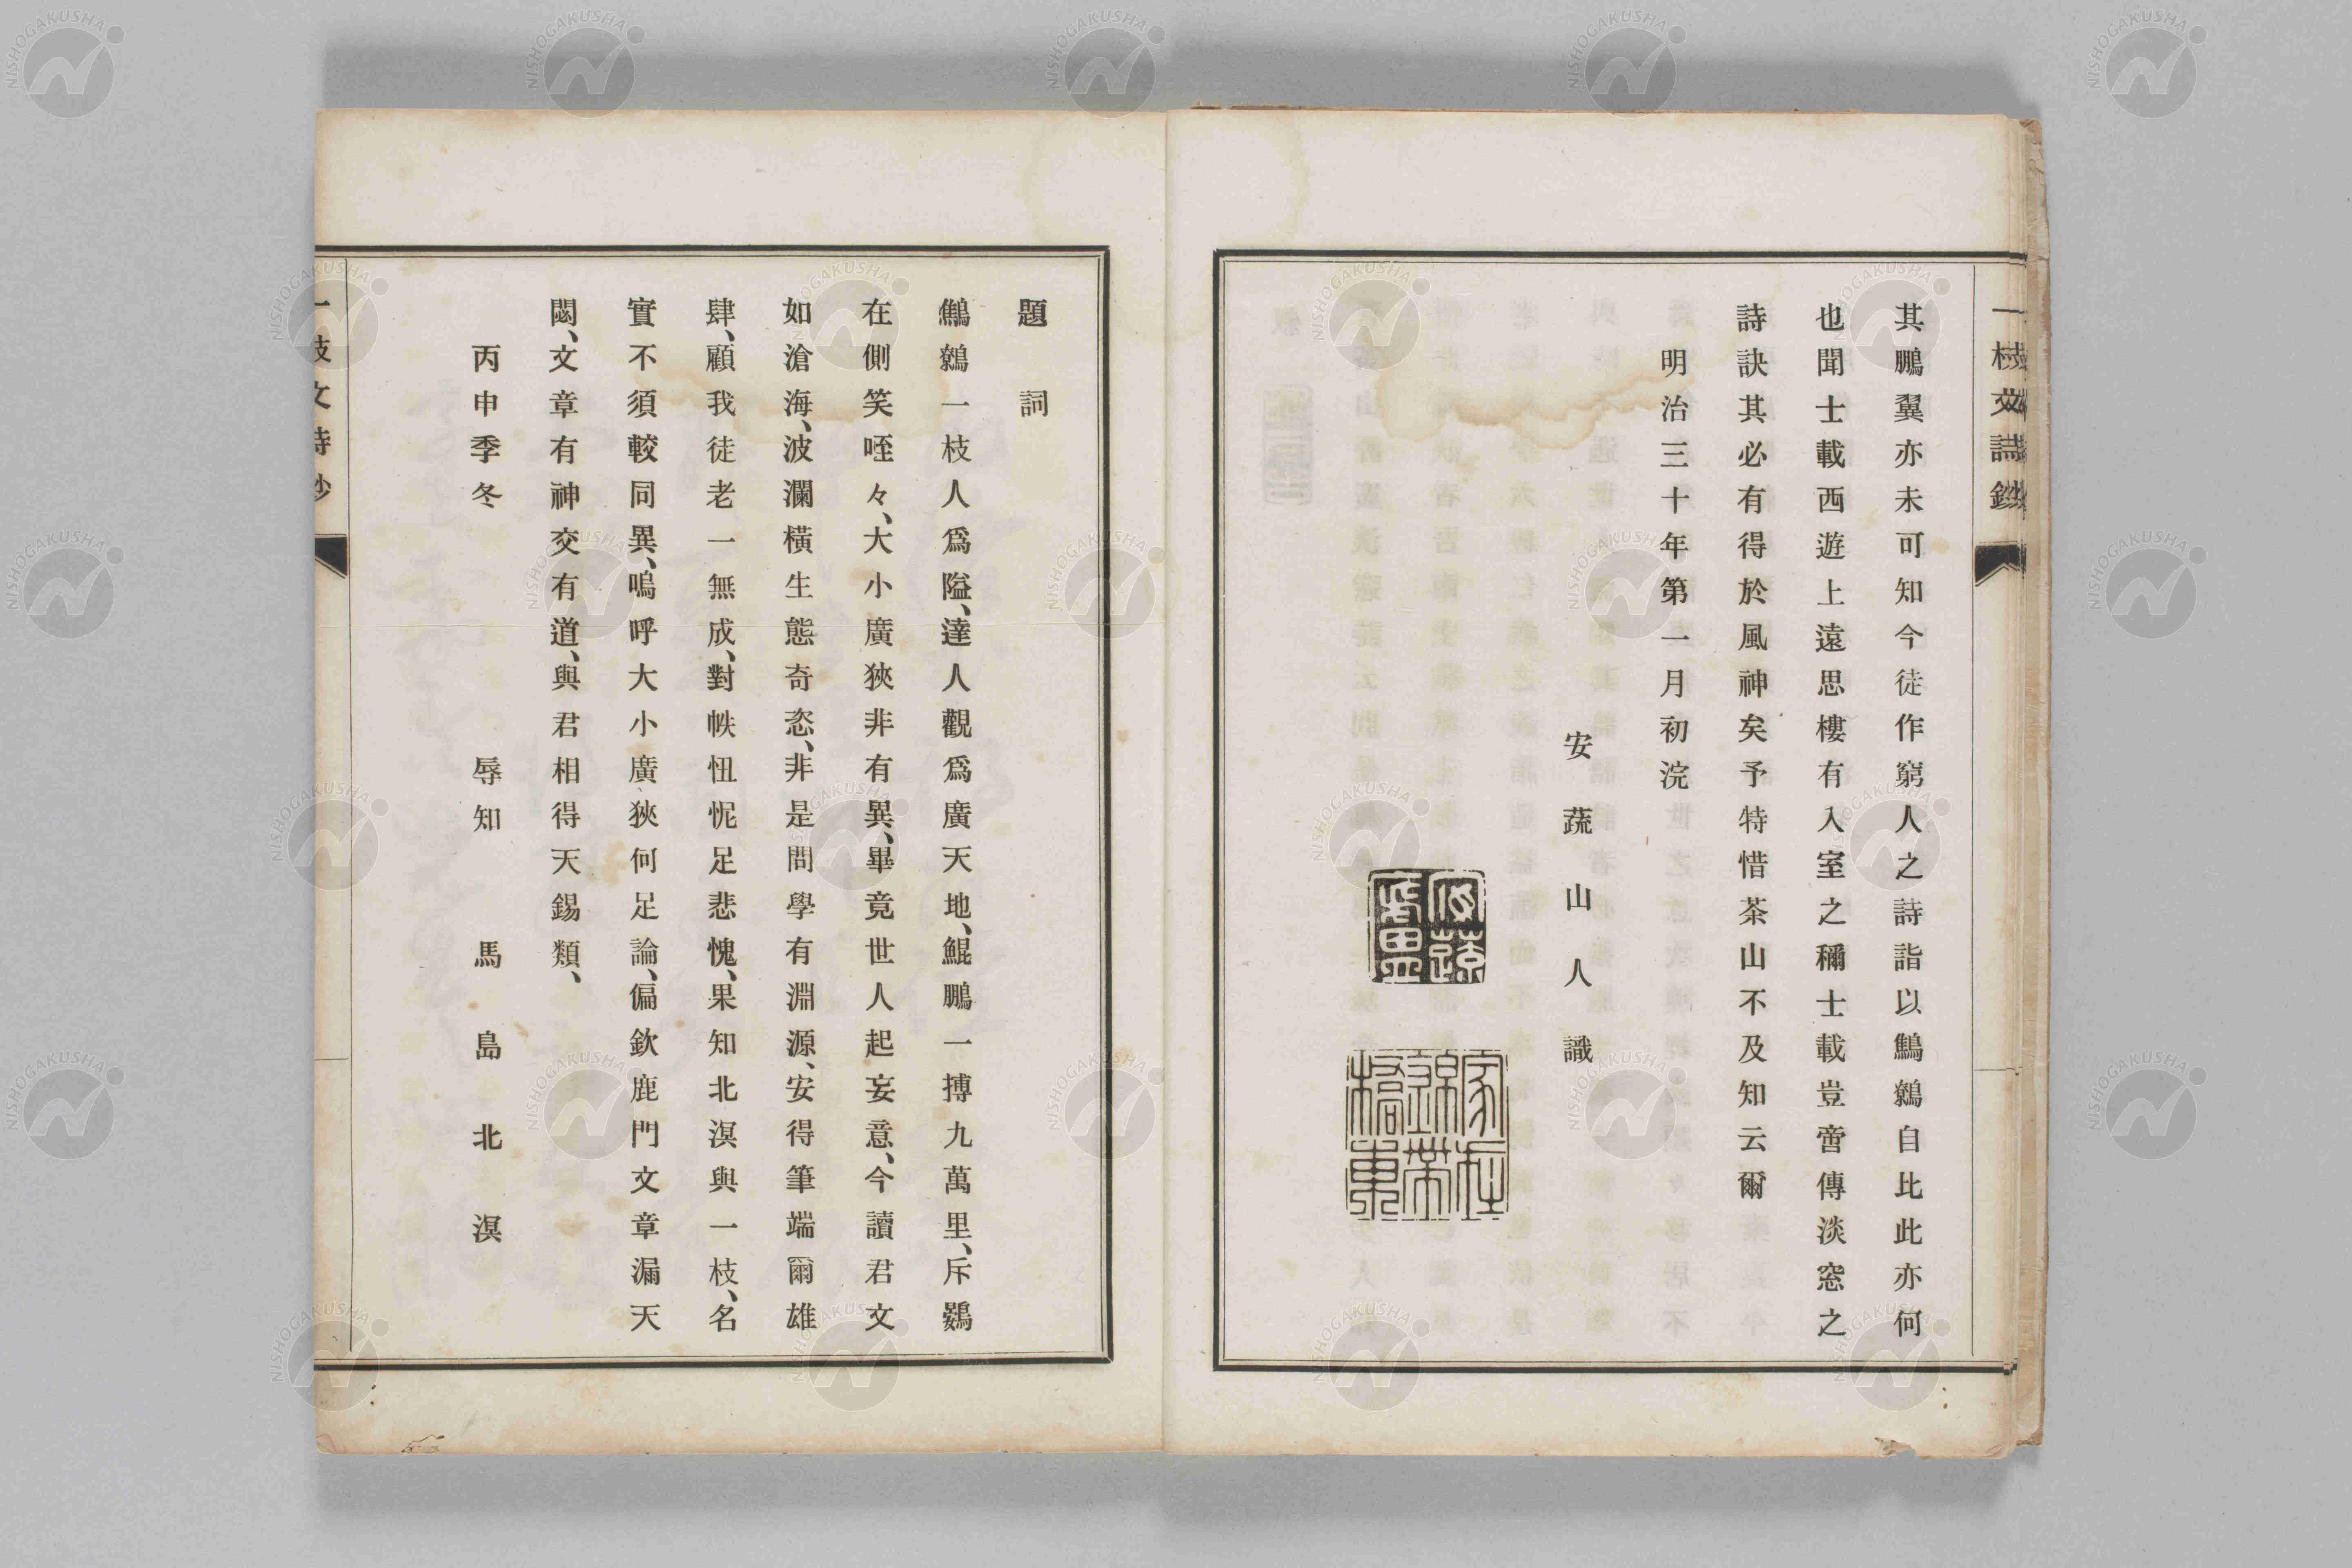 一枝文詩鈔
其鵬翼亦未可知今徒作窮人之詩詣以鷦鷯自比此亦何
也聞士載西遊上遠思樓有入室之稱士載豈啻傳淡窓之
詩訣其必有得於風神矣予特惜茶山不及知云爾
明治三十年第一月初浣
安蔬山人識
家在
錦帶
橋東
題詞
鷦鷯一枝人爲隘、達人觀爲廣天地、鯤鵬一搏九萬里、斥鷃
在側笑咥々、大小廣狹非有異、畢竟世人起妄意、今讀君文
如滄海、波瀾橫生態奇恣、非是問學有淵源、安得筆端爾雄
肆、顧我徒老一無成、對帙忸怩足悲愧、果知北溟與一枝、名
實不須較同異、嗚呼大小廣狹何足論、偏欽鹿門文章漏天
閟、文章有神交有道、與君相得天錫類、
丙申季冬
辱知 馬島北溟
一枝文詩鈔
NISHOGAKUSHA